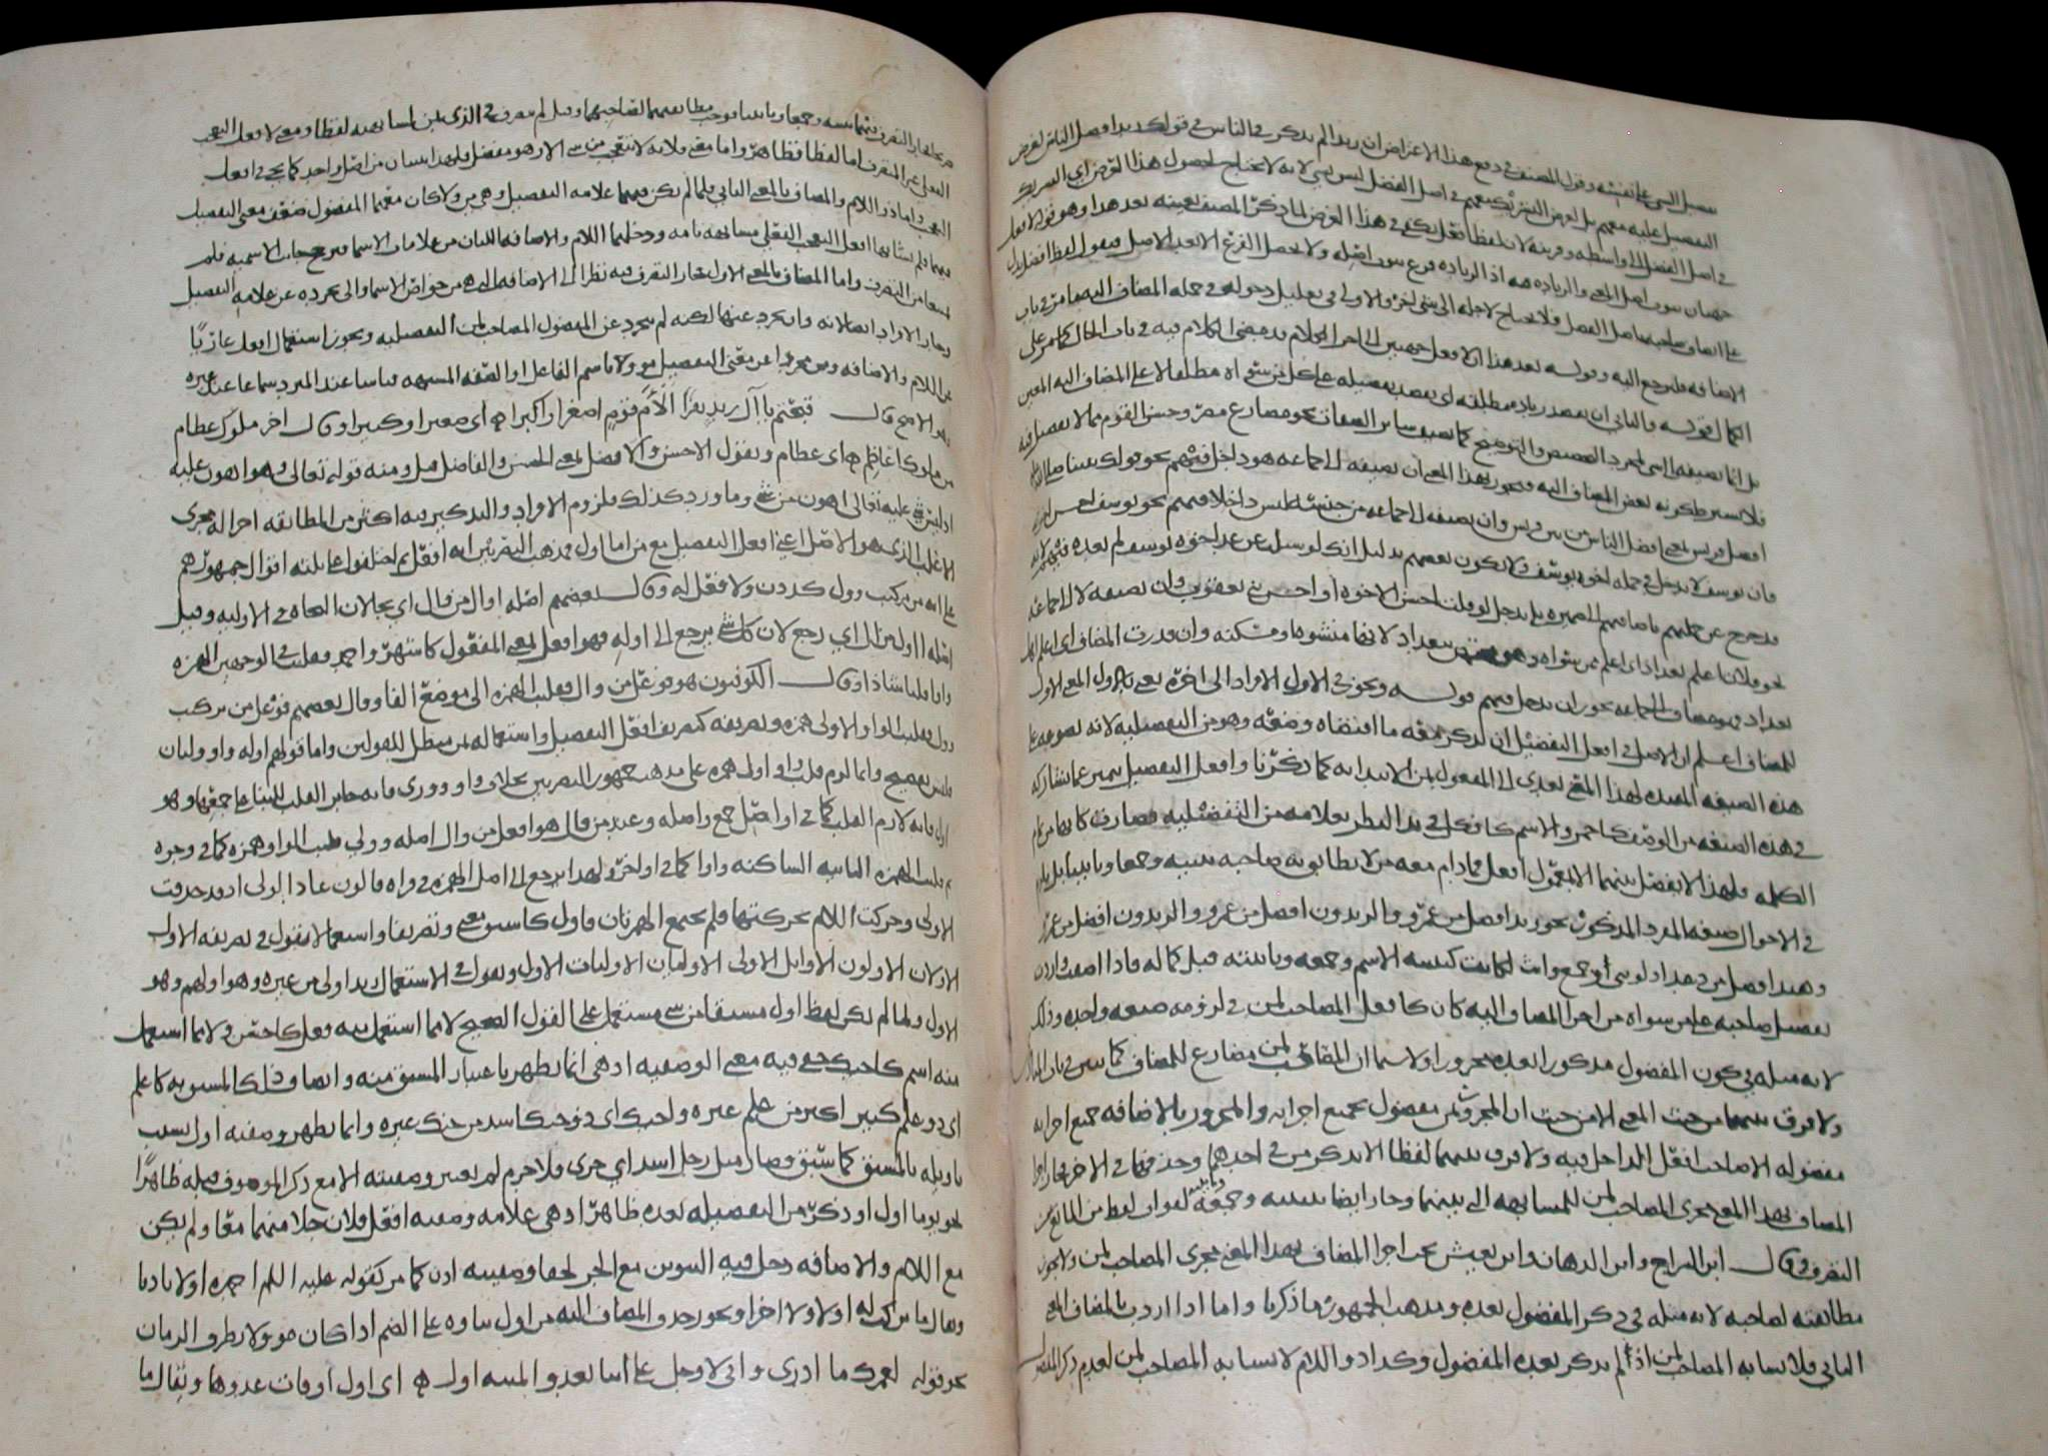 تفضيل الشي على نفسه وقول المصنف في دفع هذا الاعتراض ان زيدا لم يذكر في الناس في قولك زيد افضل الناس لغرض
التفضيل عليه معهم بل لغرض التشريك معهم في اصل الفضل ليس بشي لانه لا يحتاج لحصول هذا الغرض اي التشريك
في اصل الفضل الى واسطة وقرينة لان لفظ افعل يكفي في هذا الغرض لما ذكر المصنف بعينه بعد هذا وهو قوله لافعل
جهتان ثبوت اصل المعنى والزيادة فيه اذ الزيادة فرع ثبوت اصله ولا يحصل الفرع الا بعد الاصل فنقول لفظ افضل يدل
على اتصاف صاحبه باصل الفضل فلا يحتاج لاجله الى شي اخر والاولى في تعليل دخوله في جملة المضاف اليه ما مر في باب
الاضافة فليرجع اليه وقوله بعد هذا ان لافعل جهتين الى اخر الكلام قد مضى الكلام فيه في باب الحال كما مر على
الكمال قوله والثاني ان تقصد زيادة مطلقة اي يقصد تفضيله على كل من سواه مطلقا لا على المضاف اليه المعين
بل انما تضيفه الى شي لمجرد التخصيص والتوضيح كما تضيف سائر الصفات نحو مصارع مصر وحسن القوم مما لا تفضيل فيه
فلا يشترط كونه بعض المضاف اليه فيجوز بهذا المعنى ان تضيفه الى جماعة هو داخل فيهم نحو قولك نبينا صلى الله
افضل قريش بمعنى افضل الناس من بين قريش وان تضيفه الى جماعة من جنسه ليس داخلا فيهم نحو يوسف احسن اخوته
فان يوسف لا يدخل في جملة اخوة يوسف ولا يكون بعضهم بدليل انك لو سئلت عن عد اخوة يوسف لم تعده فيهم لانه
قد خرج عن جملتهم باضافتهم الى ضميره بلى يدخل لو قلت احسن الاخوة او احسن بني يعقوب وان تضيفه لا الى جماعة
نحو فلان اعلم بغداد اي اعلم من سواه وهو مختص ببغداد لانها منشؤه او مسكنه وان قدرت المضاف اي اعلم اهل
بغداد فهو مضاف الى جماعة يجوز ان يدخل فيهم قوله ويجوز في الاول الافراد الى اخره يعني بالاول المعنى الاول
للمضاف اعلم ان الاصل في افعل التفضيل ان يذكر معه ما اقتضاه وضعه وهو من التفضيلية لانه لصوغه على
هذه الصيغة المفيدة لهذا المعنى تعدى الى المفعول بمن الابتدائية كما ذكرنا وافعل التفضيل يتميز عما يشاركه
في هذه الصيغة من الوصف كاحمر والاسم كافكل في بدء النظر بعلامة من التفضيلية فصارت كانها من تمام
الكلمة فلهذا لا يفصل بينهما الا بمعمول افعل فما دام معه من لا يطابق به صاحبه تثنية وجمعا وتانيثا بل يلزم
في الاحوال صيغة المفرد المذكر نحو زيد افضل من عمرو والزيدان افضل من عمرو والزيدون افضل من عمرو
وهند افضل من دعد اذ لو ثني او جمع وانث لكان كتثنية الاسم وجمعه وتانيثه قبل كماله فاذا اضفته واردت
تفضيل صاحبه على من سواه من اجزاء المضاف اليه كان كافعل المصاحب لمن في لزومه صيغة واحدة وذلك
لانه مثله في كون المفضول مذكورا بعده مجرورا ولا سيما ان المقترن بمن مضارع للمضاف كما تبين في باب
ولا فرق بينهما من حيث المعنى الا من حيث ان المجرور بمن مفضول بجميع اجزائه والمجرور بالاضافة جميع اجزائه
مفضولة الا صاحب افعل الداخل فيه ولا فرق بينهما لفظا الا بذكر من في احدهما وحذفها في الاخر فجاز اجراء
المضاف بهذا المعنى مجرى المصاحب لمن للمشابهة التي بينهما وجاز ايضا تثنيته وجمعه وتانيثه لفوات لفظ من المانع من
التصرف وقال ابن السراج وابن الدهان وابن يعيش يجب اجراء المضاف بهذا المعنى مجرى المصاحب لمن ولا يجوز
مطابقته لصاحبه لانه مثله في ذكر المفضول بعده ومذهب الجمهور ما ذكرنا واما اذا اردت بالمضاف المعنى
الثاني فلا تشابه المصاحب لمن اذ لم يذكر بعده المفضول وكذا ذو اللام لا تشابه المصاحب لمن لعدم ذكر المفضول
تثنية وجمعا وتانيثا فوجب مطابقتهما لصاحبهما وقيل لم يتصرف في الذي بمن لمشابهته لفظا ومعنى لافعل التعجب
الفعلي غير المتصرف اما لفظا فظاهر واما معنى فلانه لا يتعجب من شي الا وهو مفضل فلهذا يبنيان من اصل واحد كما يجي في افعل
التعجب واما ذو اللام والمضاف بالمعنى الثاني فلما لم يكن فيهما علامة التفضيل وهي من ولا كان معهما المفضول ضعف معنى التفضيل
فيهما فلم يشابها افعل التعجب الفعلي مشابهة تامة ودخلهما اللام والاضافة اللتان من علامات الاسماء فترجح جانب الاسمية فلم
يمنعا من التصرف واما المضاف بالمعنى الاول فجاز التصرف فيه نظرا الى الاضافة التي هي من خواص الاسماء والى تجرده عن علامة التفضيل
وجاز الافراد
عن اللام والاضافة ومن مجردا عن معنى التفضيل مؤولا باسم الفاعل او الصفة المشبهة قياسا عند المبرد سماعا عند غيره
وهو الاصح قال قبحتم يا آل زيد نفرا ألأم قوم اصغرا واكبرا اي صغيرا وكبيرا وقال اخر ملوك عظام
من ملوك اعاظم اي عظام وتقول الاحسن والافضل بمعنى الحسن والفاضل قيل ومنه قوله تعالى وهو اهون عليه
اذ ليس شي عليه تعالى اهون من شي وما ورد كذلك فلزوم الافراد والتذكير فيه اكثر من المطابقة اجراء له مجرى
الاغلب الذي هو الاصل اعني افعل التفضيل مع من اما اول فمذهب البصريين انه افعل ثم اختلفوا على ثلثة اقوال جمهورهم
على انه من تركيب وول كددن ولا فعل له وقال بعضهم اصله اوأل من وأل اي نجا لان النجاة في الاولية وقيل
اصله اأول من آل اي رجع لان كل شي يرجع الى اوله فهو افعل بمعنى المفعول كاشهر واحمد فقلبت في الوجهين الهمزة
واوا قلبا شاذا وقال الكوفيون هو فوعل من وأل فقلبت الهمزة الى موضع الفاء وقال بعضهم فوعل من تركيب
وول فقلبت الواو الاولى همزة وتصريفه كتصريف افعل التفضيل واستعماله بمن مبطل للقولين واما قولهم اولة واولتان
فليس بفصيح وانما لزم قلب واو اولى همزة على مذهب جمهور البصريين بخلاف واو ووري فانه جائز القلب
اول فانه لازم القلب كما في اواصل جمع واصلة وعند من قال هو افعل من وأل اصله وولى قلبت الواو همزة كما في وجوه
ثم قلبت الهمزة الثانية الساكنة واوا كما في اولى ولهذا يرجع الى اصل الهمزة في قراءة قالون عادا الولى اذ قد حذفت
الاولى وحركت اللام بحركتها فلم يجتمع الهمزتان فاول كاسبق معنى وتصريفا واستعمالا تقول في تصريفه الاول
الاولان الاولون الاوائل الاولى الاوليان الاوليات الاول وتقول في الاستعمال زيد اول من غيره وهو اولهم وهو
الاول ولما لم يكن لفظ اول مشتقا من شي مستعمل على القول الصحيح لا مما استعمل منه فعل كاحسن ولا مما استعمل
منه اسم كاحنك خفي فيه معنى الوصفية اذ هي انما تظهر باعتبار المشتق منه واتصاف ذلك المشتق به كاعلم
اي ذو علم كثير اكثر من علم غيره واحنك اي ذو حنك اشد من حنك غيره وانما تظهر وصفية اول بسبب
تاويله بالمشتق كما سبق فصار مثل رجل اسد اي جري فلا جرم لم تعتبر وصفيته الا مع ذكر الموصوف قبله ظاهرا
نحو يوما اول او ذكر من التفضيلية بعده ظاهرا اذ هي علامة وصفية افعل فان خلا منهما معا ولم يكن
مع اللام والاضافة دخل فيه التنوين مع الجر لخفاء وصفيته اذن كما مر كقوله عليه السلام احمده اولا باديا
ويقال ما تركت له اولا ولا اخرا ويجوز حذف المضاف اليه من اول بناؤه على الضم اذا كان مؤولا بظرف الزمان
نحو قوله لعمرك ما ادري واني لاوجل على اينا تعدو المنية اول اي اول اوقات عدوها ويقال ما